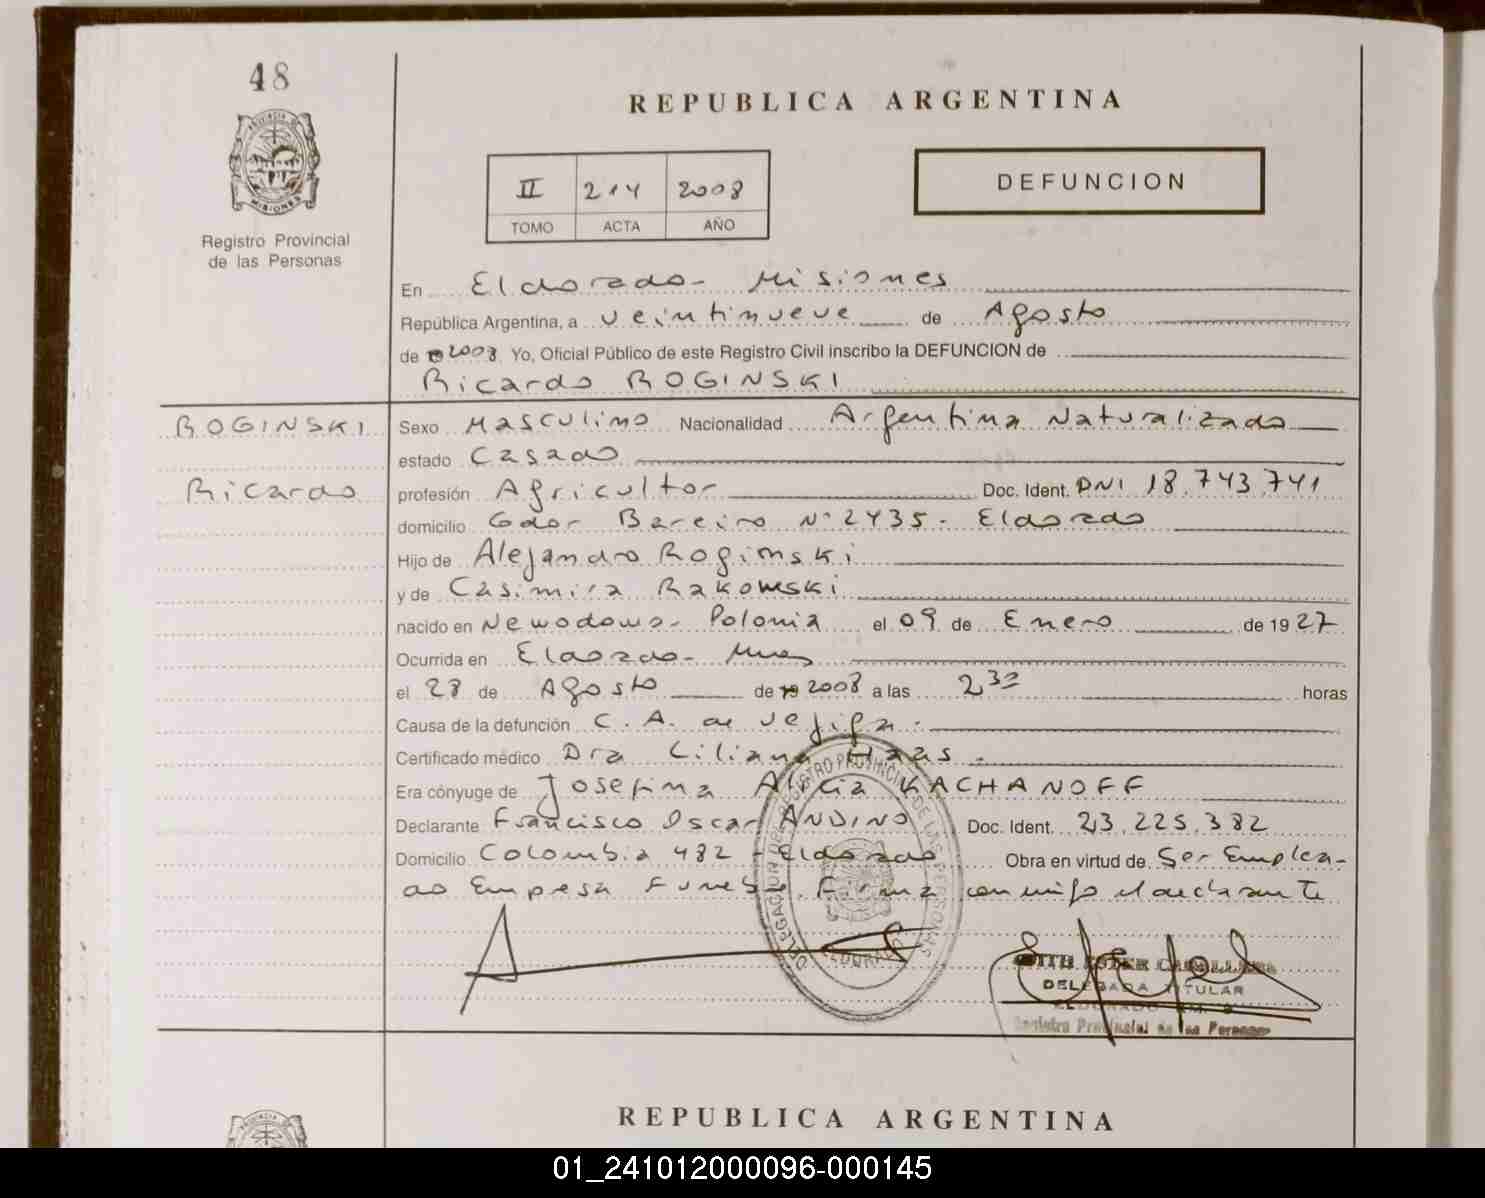 48
PROVINCIA DE
MISIONES
Registro Provincial
de las Personas
REPUBLICA ARGENTINA
II 214 2008
TOMO ACTA AÑO
DEFUNCION
En Eldorado - Misiones
República Argentina, a veintinueve de Agosto
de 2008 Yo, Oficial Público de este Registro Civil inscribo la DEFUNCION de
Ricardo ROGINSKI
ROGINSKI
Ricardo
Sexo Masculino Nacionalidad Argentina Naturalizado
estado Casado
profesión Agricultor Doc. Ident. DNI 18.743.741
domicilio Gdor Bareiro N° 2435 - Eldorado
Hijo de Alejandro Roginski
y de Casimira Rakowski
nacido en Newodowo - Polonia el 09 de Enero de 1927
Ocurrida en Eldorado - Mnes
el 28 de Agosto de 2008 a las 2,30 horas
Causa de la defunción C. A. de vejiga.
Certificado médico Dra Liliana Haas.
Era cónyuge de Josefina Alicia KACHANOFF
Declarante Francisco Oscar ANDINO Doc. Ident. 23.225.382
Domicilio Colombia 482 - Eldorado Obra en virtud de Ser Emplea-
do Empresa Funebre. Firma conmigo el declarante
DELEGACION DEL REGISTRO PROVINCIAL DE LAS PERSONAS
ELDORADO
ESTER
DELEGADA TITULAR
ELDORADO
Registro Provincial de las Personas
REPUBLICA ARGENTINA
PROVINCIA
01_241012000096-000145